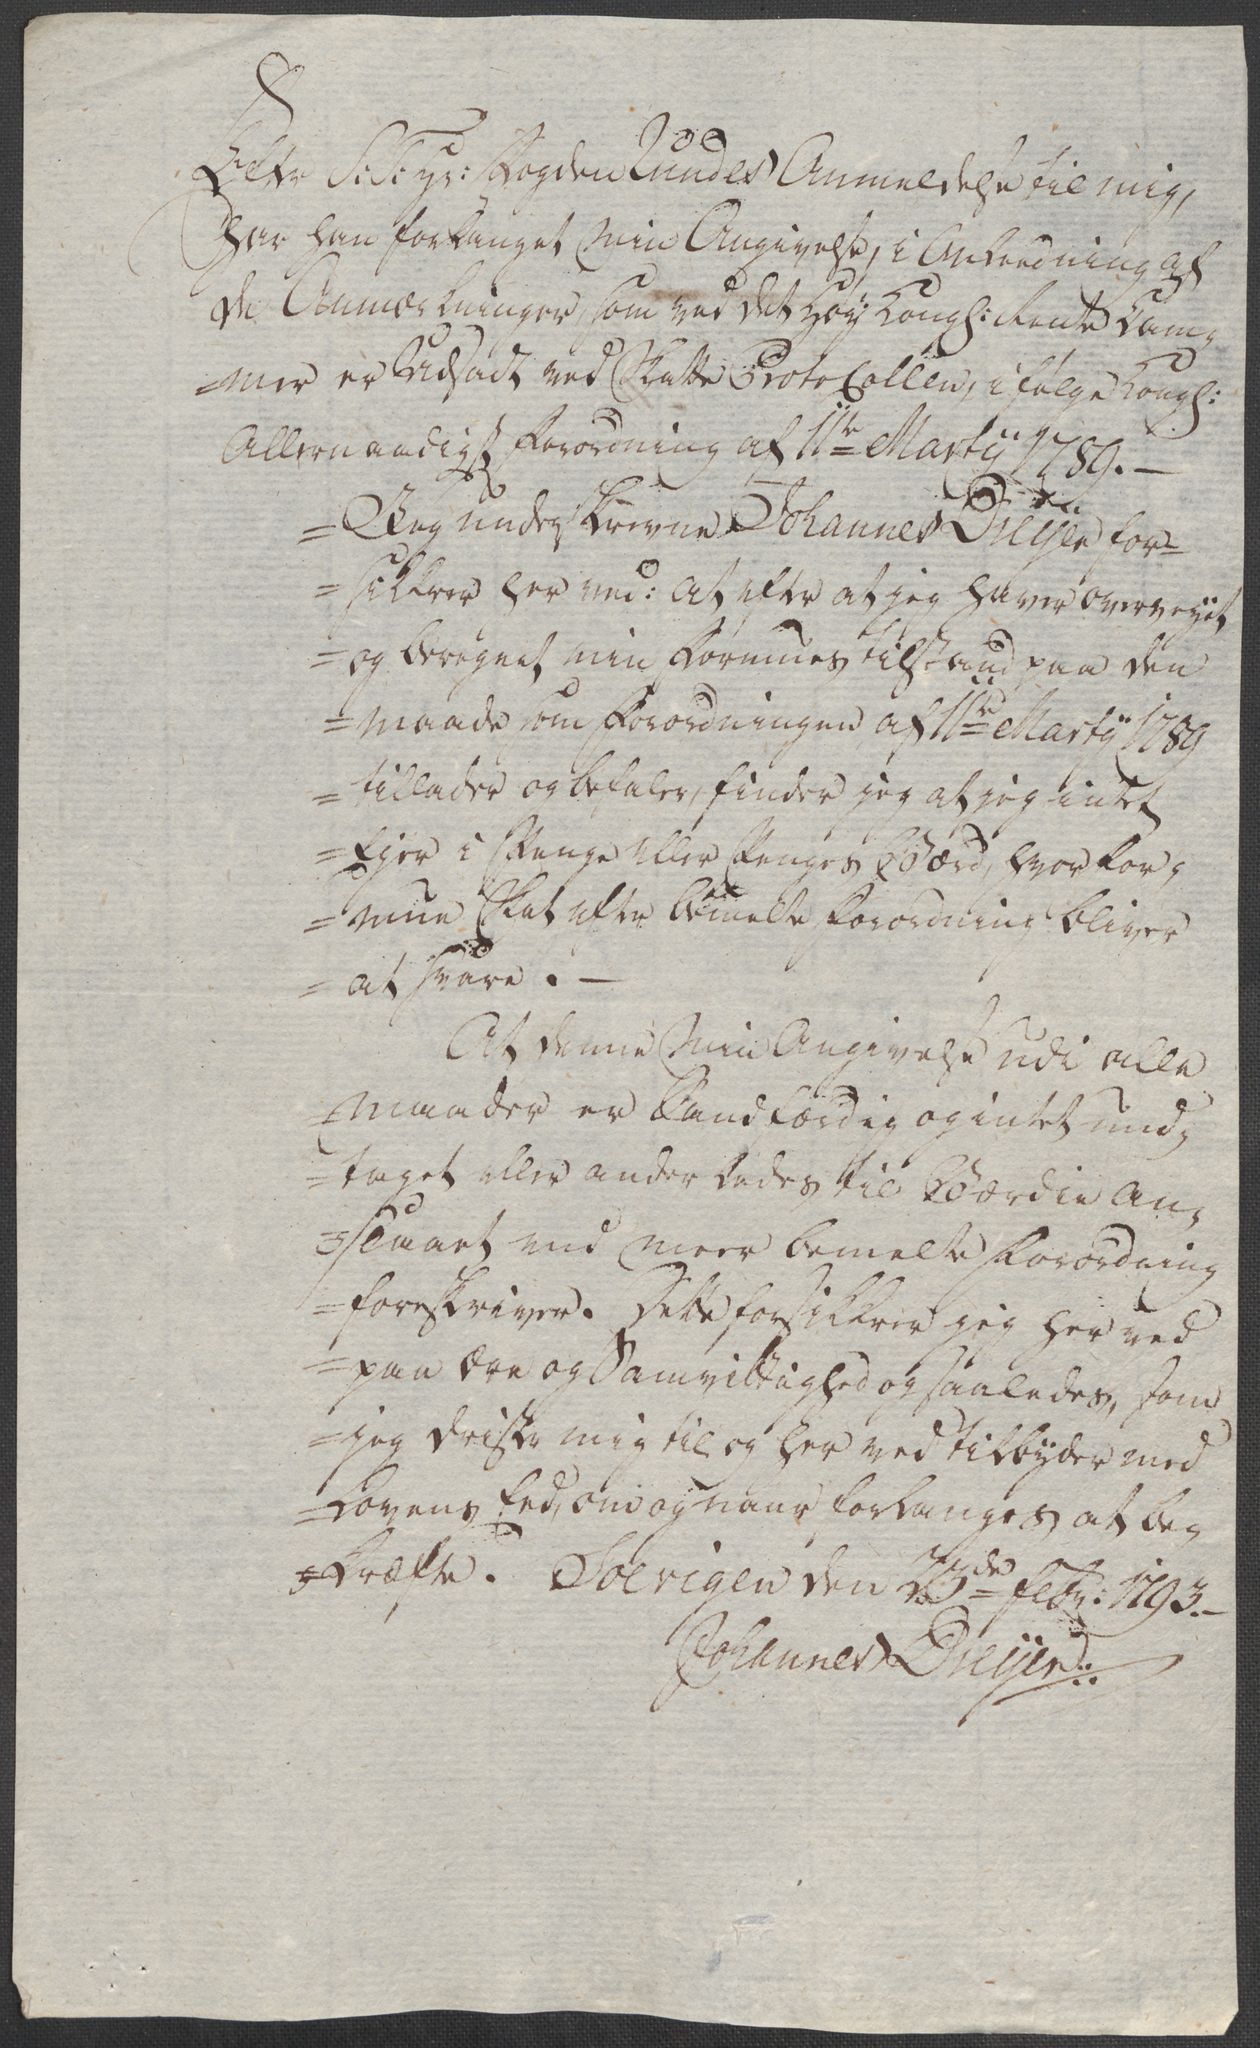 Efter S: T: Hr: Fogden Lundes Anmeldelse til mig,
har han forlanget min Angivelse, i Anledning af
de Anmærkninger, som ved det Høy Kongl: Rente Kam=
=mer er Udsadt ved Skatte Protocollen, i følge Kongl:
Allernaadigst Forordning af 11te Martij 1789. —
=Jeg underskrevne Johannes Dreÿer for=
=sikkrer her ved: at efter at jeg haver overveÿet
=og beregnet min Formues tilstand paa den
=maade som Forordningen af 11te Martij 1789
=tillader og befaler, finder jeg at jeg intet
=Ejer i Penge eller Penges Værd, hvor For=
=mue Skat efter bemelte Forordning bliver
=at svare. —
At denne min Angivelse udi alle
=maader er Sandfærdig og intet und=
=taget eller anderledes til Værdie an=
=slaaet end meer bemelte Forordning
=foreskriver. Dette forsikkrer jeg her ved
=paa Ære og Samvittighed og saaledes, som
=jeg drister mig til og her ved tilbÿder med
=Lovens Eed, om og naar forlanges at be=
=kræfte. Soevigen den 23de Febr: 1793. —
Johannes Dreÿer